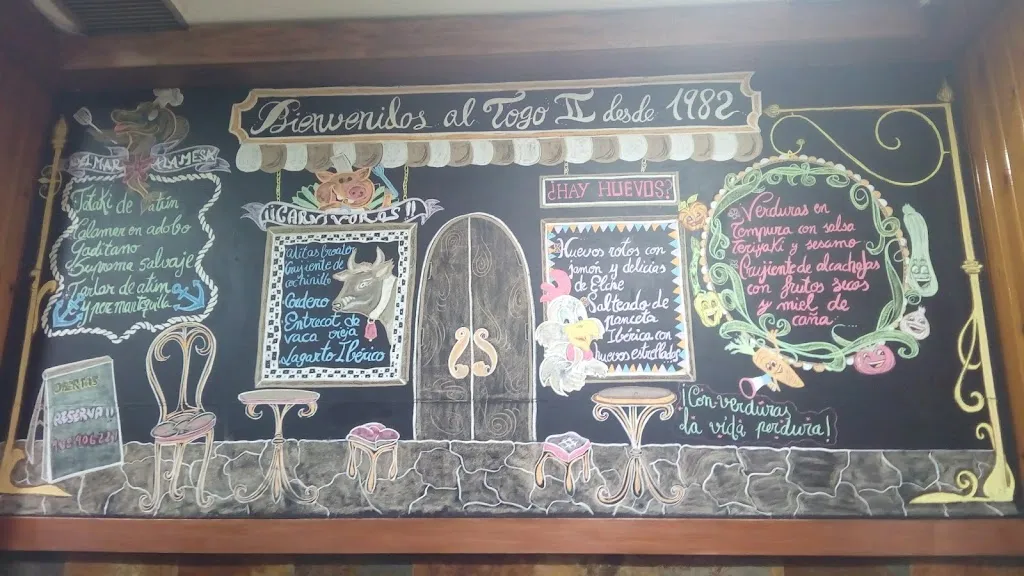 Bienvenidos al Togo II desde 1982
Tataki de
Calamar en adobo
Gaditano
Suprema Salvaje
Tartar de atún
y pez mantequilla
¡¡CARNÍVOROS!!
Crujiente de
cochinillo
Codero
Entrecot de
vaca vieja
Lagarto Ibérico
¿HAY HUEVOS?
Huevos rotos con
jamón y delicias
de Elche
Salteado de
panceta
Ibérica con
huevos estrellados
Verduras en
Tempura con salsa
Teriyaki y sesamo
Crujiente de alcachofas
con frutos secos
y miel de
caña...
¡Con verduras
la vida perdura!
RESERVA